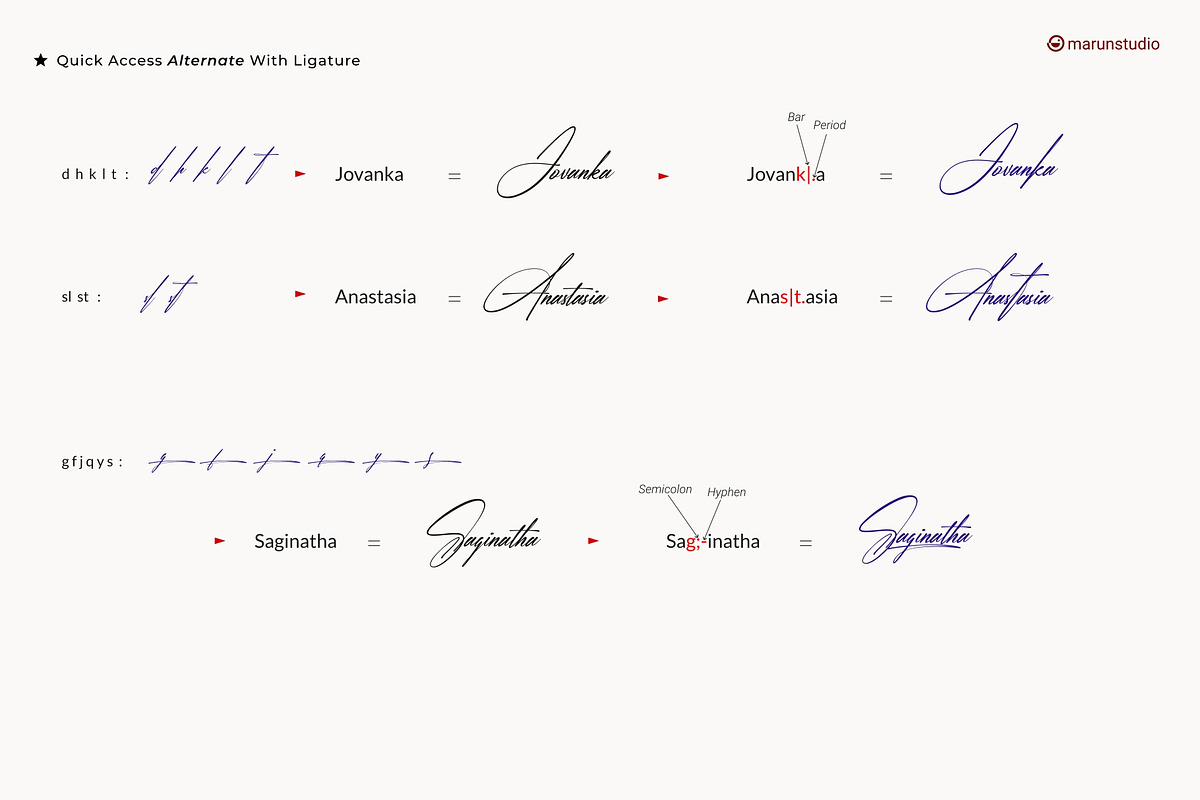 marunstudio
★ Quick Access Alternate With Ligature
Bar
Period
d h k l t : d h k l t ► Jovanka = Jovanka ► Jovank|.a = Jovanka
sl st : sl st ► Anastasia = Anastasia ► Anas|t.asia = Anastasia
g f j q y s : g f j q y s
Semicolon Hyphen
► Saginatha = Saginatha ► Sag;-inatha = Saginatha